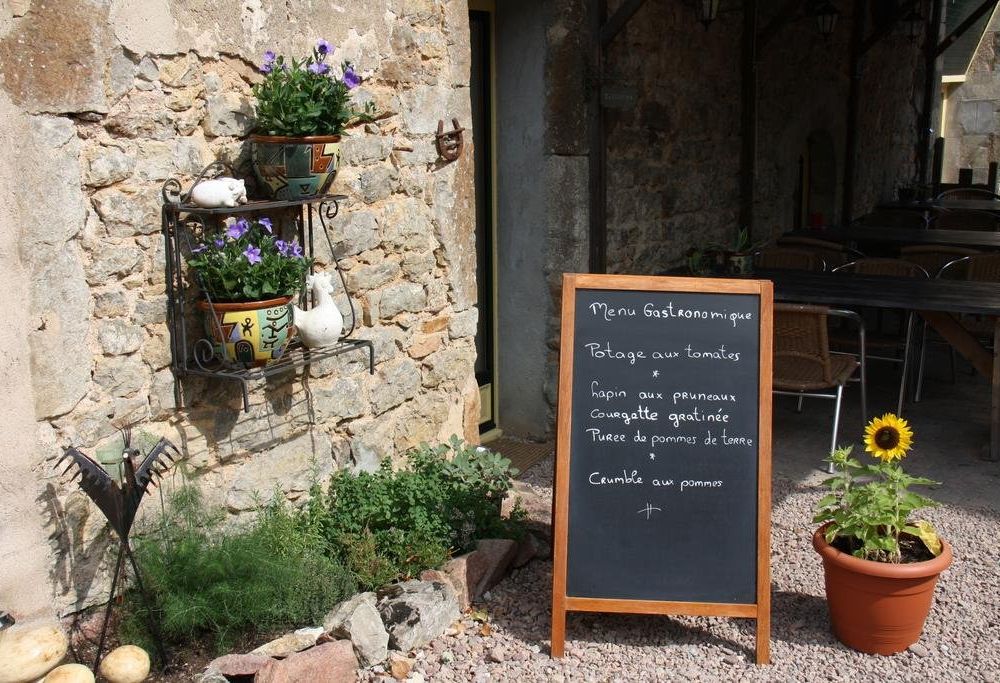 Menu Gastronomique
Potage aux tomates
*
Lapin aux pruneaux
Courgette gratinée
Puree de pommes de terre
*
Crumble aux pommes